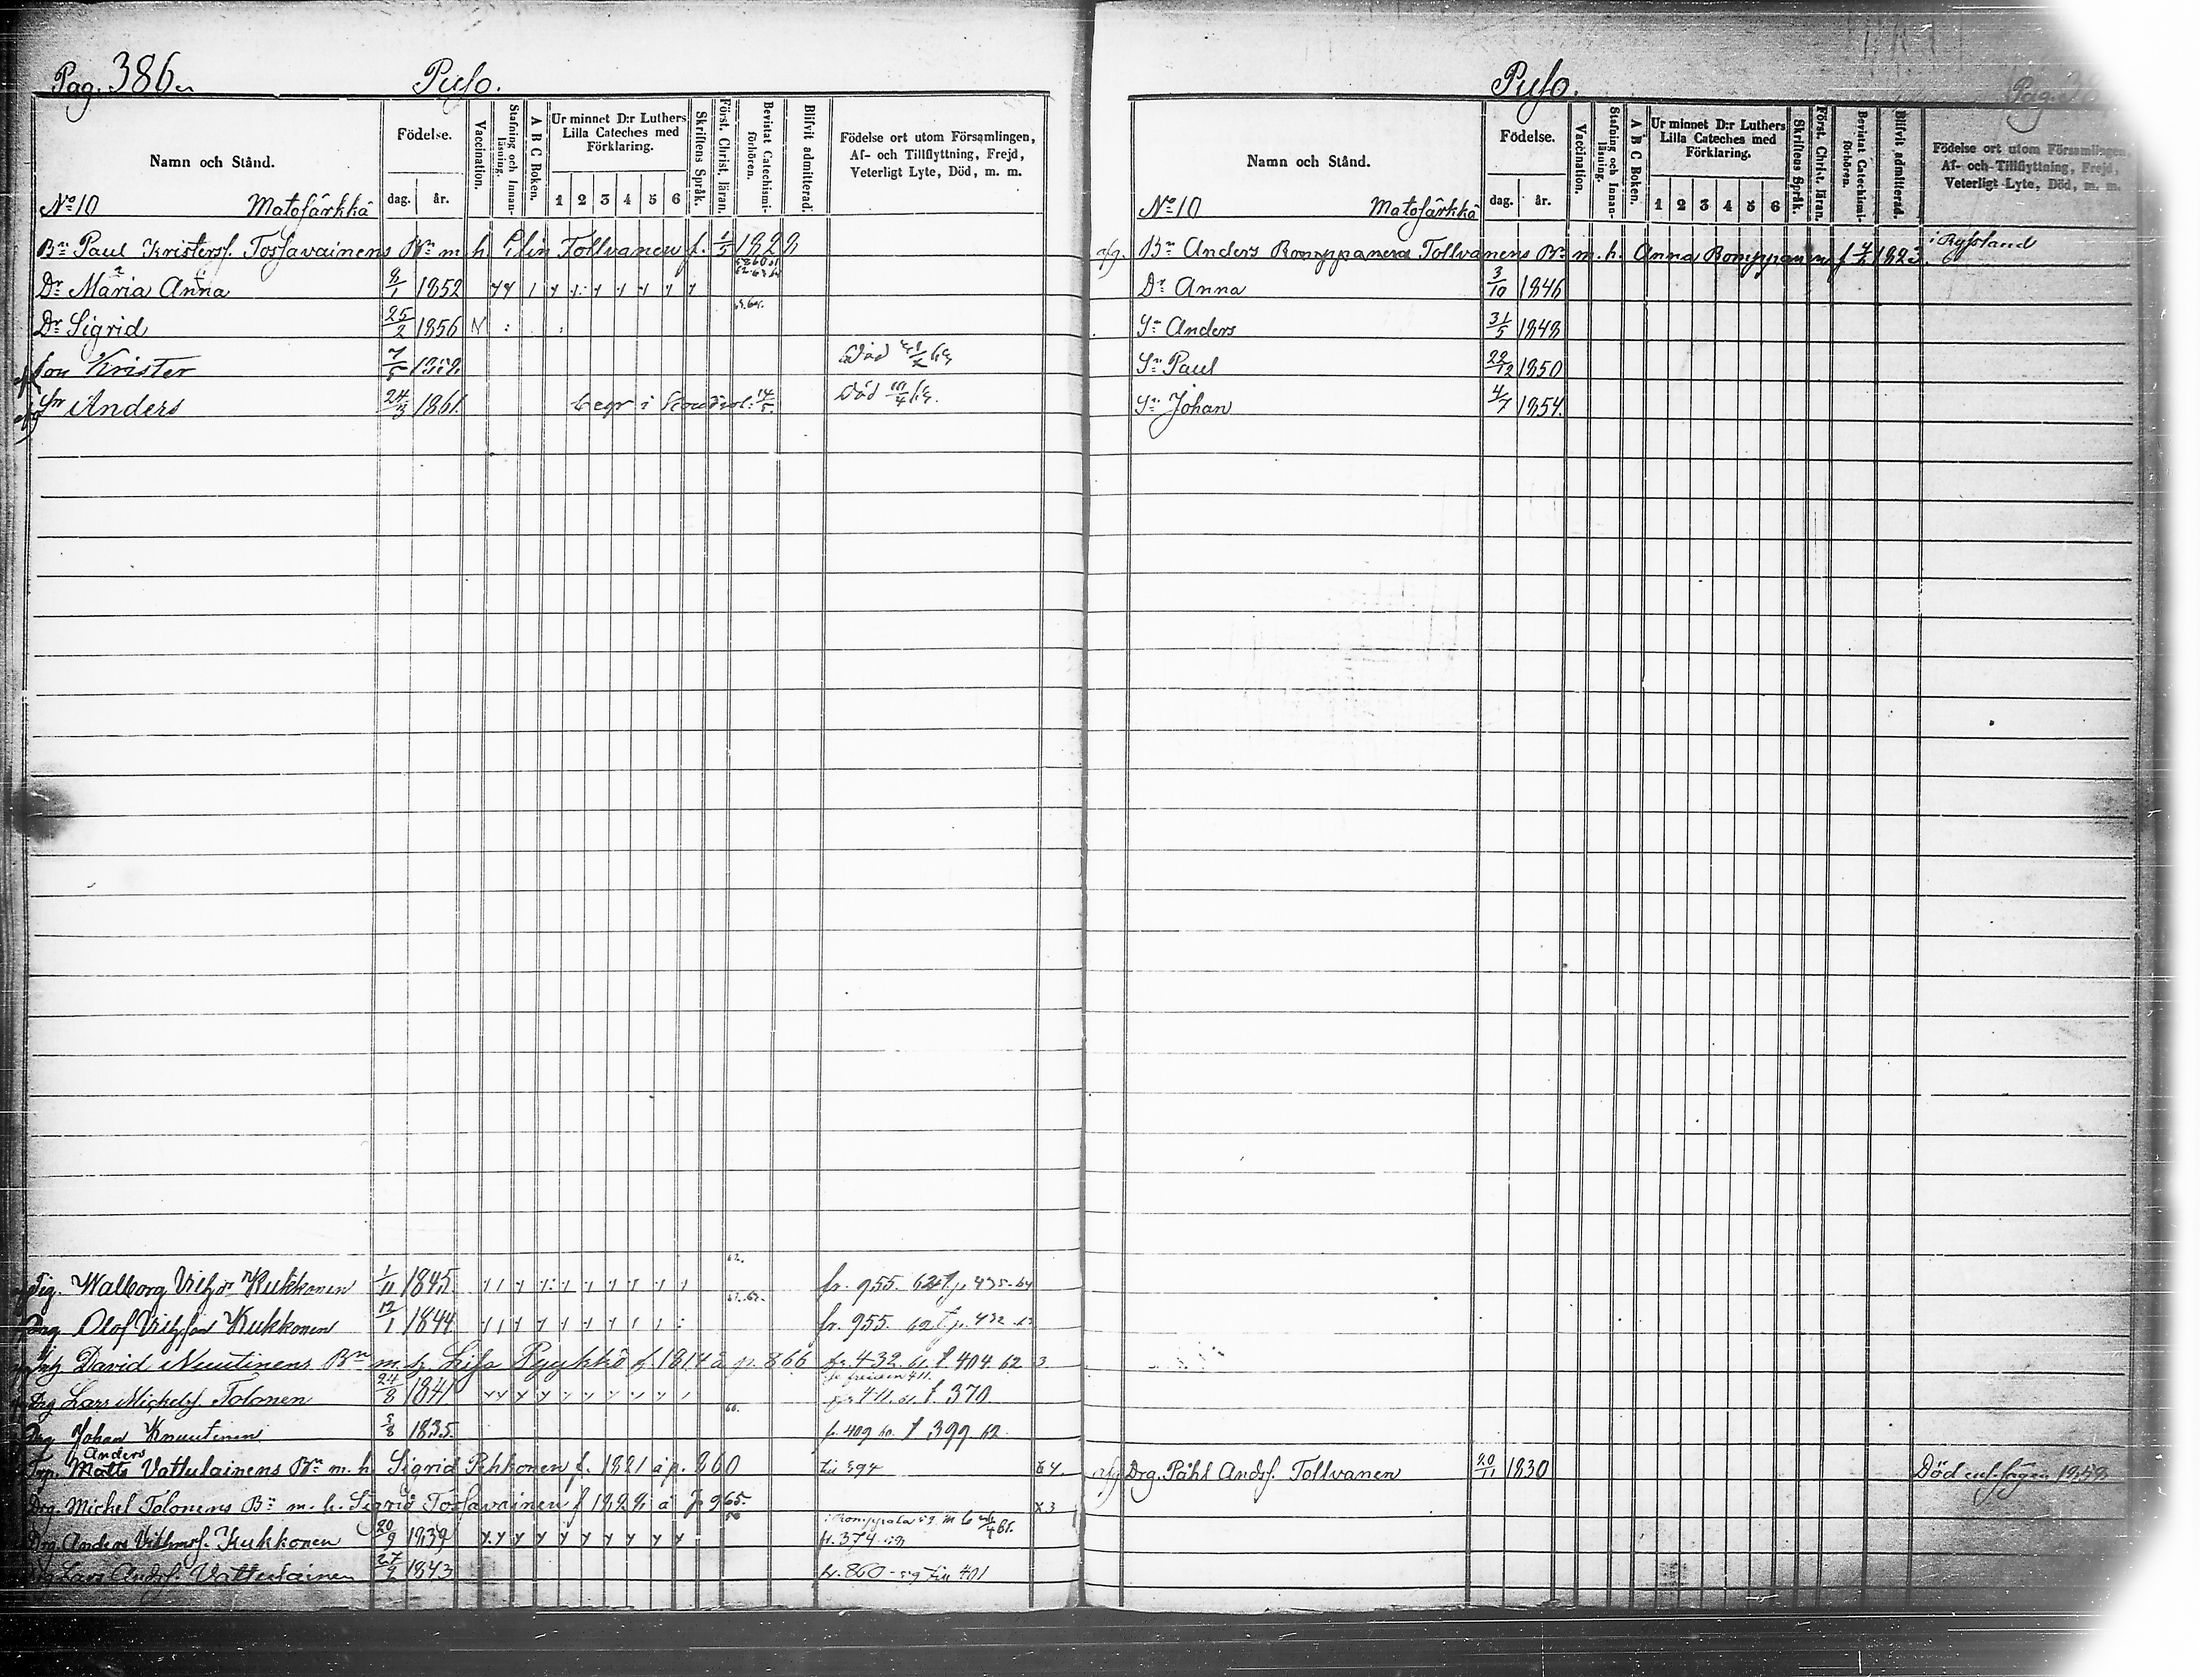 Pag. 386
Puso.
Namn och Stånd.
Födelse.
dag. år.
Vaccination.
Stafning och Innanläsning.
A B C Boken.
Ur minnet D:r Luthers Lilla Cateches med Förklaring.
1 2 3 4 5 6
Skriftens Språk.
Först. Christ. läran.
Bevistat Catechismiförhören.
Blifvit admitterad.
Födelse ort utom Församlingen,
Af- och Tillflyttning, Frejd,
Veterligt Lyte, Död, m. m.
No 10 Matosärkkä
Bn Paul Kristerss. Tossavainens Bn m. h. Elin Tollvanen f. 1822
Dr Maria Anna 8/1 1852
Dr Sigrid 25/2 1856
Son Krister 7/5 Död
Sn Anders 24/3 1861 begr i Död
Pig. Walborg Vilh:dr Kukkonen 1/11 1845 fr. 955. 62 435-64
Drg Olof Vilh:son Kukkonen 12/1 1844 fr. 955. 432
David Nuutinens Bn m. h. Lisa Pyykkö f. 1814 å p. 866 fr. 432. 61. t 404 62
Drg Lars Michelss. Tolonen 24/8 1841 411. 61. t 370
Drg Johan Knuutinen 1835 fr. 409 60. t 399 62
Anders
Matts Vattulainens Bn m. h. Sigrid Pehkonen f. 1821 å p. 860 till 394 64.
Drg. Michel Tolonens Bn m. h. Sigrid Tossavainen f 1822 å p 965. 63
Drg. Anders Vilhmss. Kukkonen 20/9 1839 fr. 374
Lars Andss. Vattulainen 27/2 1843 fr. 860 - till 401
Puso.
Pag.
Namn och Stånd.
Födelse.
dag. år.
Vaccination.
Stafning och Innanläsning.
A B C Boken.
Ur minnet D:r Luthers Lilla Cateches med Förklaring.
1 2 3 4 5 6
Skriftens Språk.
Först. Christ. läran.
Bevistat Catechismiförhören.
Blifvit admitterad.
Födelse ort utom Församlingen,
Af- och Tillflyttning, Frejd,
Veterligt Lyte, Död, m. m.
No 10 Matosärkkä
afg. Bn Anders Romppanens Tollvanens Bn m. h. Anna Romppanen f 1823 i Ryssland
Dr Anna 3/10 1846
Sn Anders 31/5 1848
Sn Paul 22/12 1850
Sn Johan 4/7 1854
afg Drg. Påhl Andss. Tollvanen 20/11 1830 Död 1858